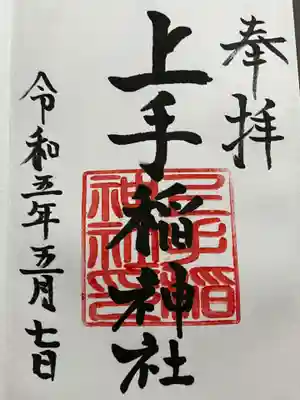 奉拝
上手稲神社
上手稲神社印
令和五年五月七日